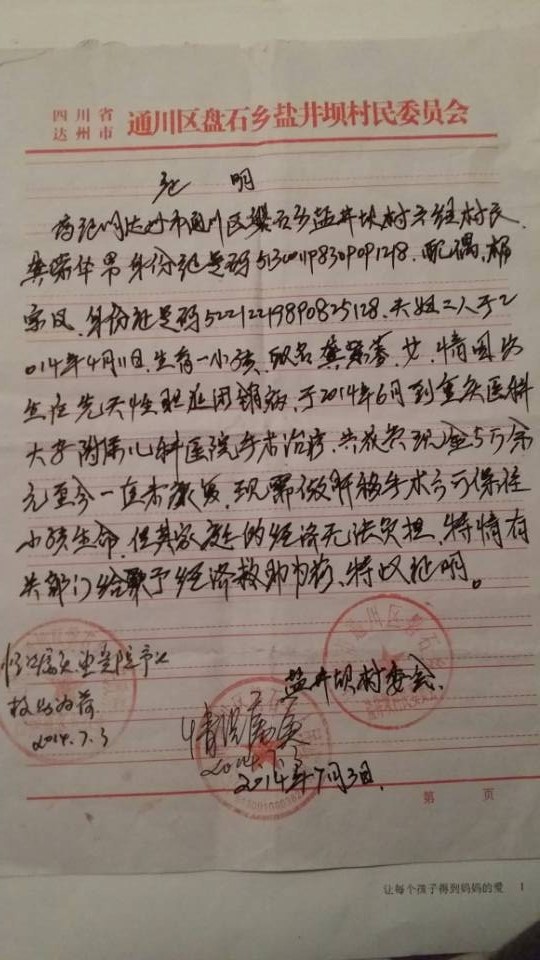 四川省
达州市
通川区盘石乡盐井坝村民委员会
证 明
兹证明达州市通川区盘石乡盐井坝村 村民
华 男 身份证号码 配偶,杨
宗凤,身份证号码52212219890825128.夫妇二人于2
014年4月11日,生育一小孩,取名 ,女,
生症先天性胆道闭锁病,于2014年6月到重庆医科
大学附属儿科医院手术治疗,共花费现金5万余
元至今一直未康复,现需做肝移手术方可保住
小孩生命,但其家庭的经济无法负担,特情有
关部门给予经济救助为谢,特此证明。
盐井坝村委会
2014年7月3日
情况属实
2014.7.3
情况属实
为荷
2014.7.3
第 页
让每个孩子得到妈妈的爱 1